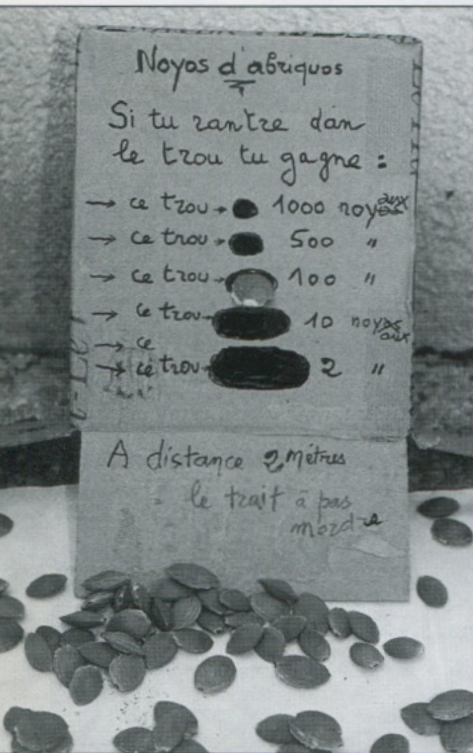 Noyos d'abriquos
Si tu rantre dan
le trou tu gagne :
→ ce trou → 1000 noyaux
→ ce trou → 500 "
→ ce trou → 100 "
→ ce trou → 10 noyaux
→ ce
→ ce trou → 2 "
A distance 2 Mètres
le trait à pas
mordre